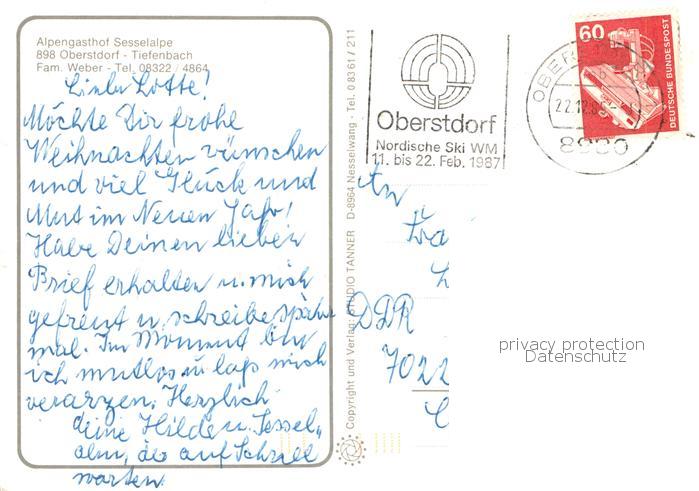 Alpengasthof Sesselalpe
898 Oberstdorf - Tiefenbach
Fam. Weber - Tel. 08322 / 4864
Liebe Lotte!
Möchte Dir frohe
Weihnachten wünschen
und viel Glück und
Mut im Neuen Jahr!
Habe Deinen lieben
Brief erhalten u. mich
gefreut u. schreibe später
mal. Im Moment bin
ich mutlos u. lass mich
verarzen. Herzlich
deine Hilde u. Sessel„
alm, die auf Schnee
warten.
Copyright und Verlag: STUDIO TANNER D-8964 Nesselwang - Tel. 0 83 61 / 211
Oberstdorf
Nordische Ski WM
11. bis 22. Feb. 1987
OBER
22.12.86
8980
60
DEUTSCHE BUNDESPOST
An
DDR
7022
privacy protection
Datenschutz